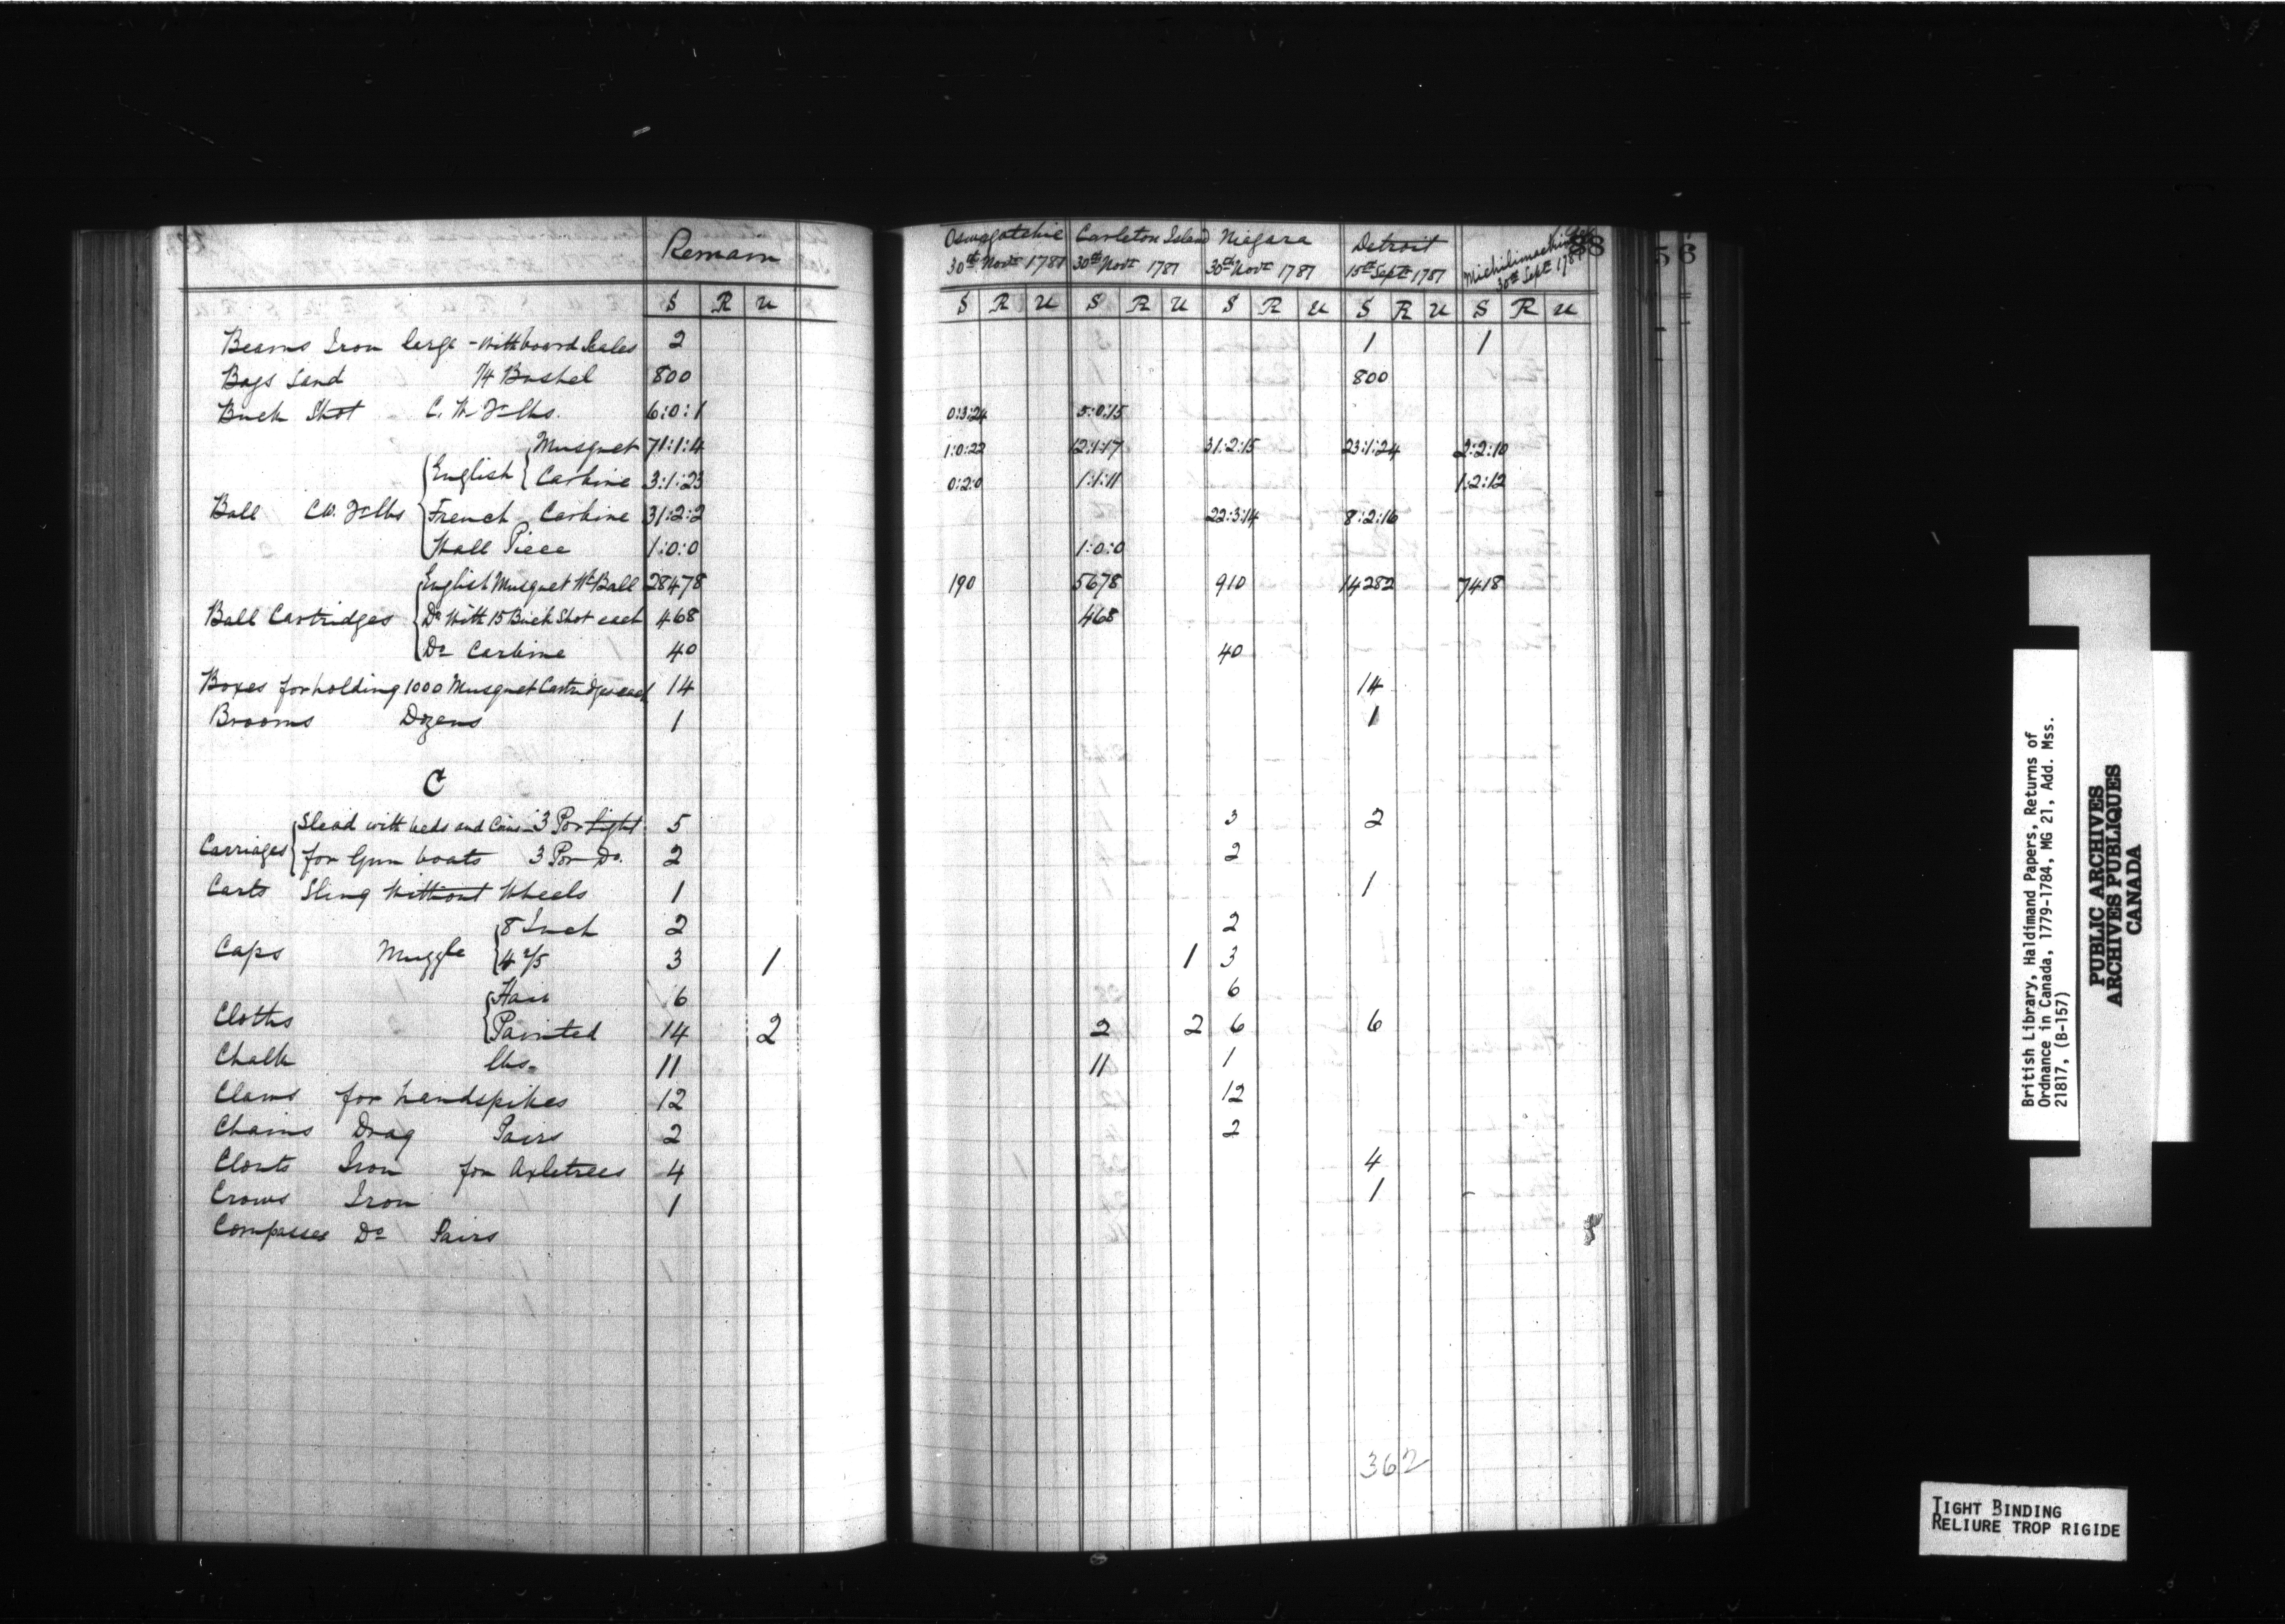 Remain
Oswegatchie Carleton Island Niagara Detroit Michilimackinac 88
30th Novr 1781 30th Novr 1781 30th Novr 1781 15th Septr 1781 30th Septr 1781
S R U S R U S R U S R U S R U S R U
Beams Iron large - with board Scales 2 1 1
Bags Sand 1/4 Bushel 800 800
Buck Shot C. W. Qr lbs. 6:0:1 0:3:24 5:0:15
Musquet 71:1:4 1:0:22 12:1:17 31:2:15 23:1:24 2:2:10
English Carbine 3:1:23 0:2:0 1:1:11 1:2:12
Ball CW. Qr lbs French Carbine 31:2:2 22:3:14 8:2:16
Wall Piece 1:0:0 1:0:0
English Musquet Wt Ball 28478 190 5678 910 14282 7418
Ball Cartridges Do With 15 Buck Shot each 468 468
Do Carbine 40 40
Boxes for holding 1000 Musquet Cartridges each 14 14
Brooms Dozens 1 1
C
Slead with beds and Coins 3 Por Light 5 3 2
Carriages for Gun boats 3 Por Do. 2 2
Carts Sling Without Wheels 1 1
8 Inch 2 2
Caps Muzzle 4 2/5 3 1 1 3
Hair 6 6
Cloths Painted 14 2 2 2 6 6
Chalk lbs. 11 11 1
Claws for handspikes 12 12
Chains Drag Pairs 2 2
Clouts Iron for Axletrees 4 4
Crows Iron 1 1
Compasses Do Pairs
362
56
British Library, Haldimand Papers, Returns of
Ordnance in Canada, 1779-1784, MG 21, Add. Mss.
21817, (B-157)
PUBLIC ARCHIVES
ARCHIVES PUBLIQUES
CANADA
TIGHT BINDING
RELIURE TROP RIGIDE